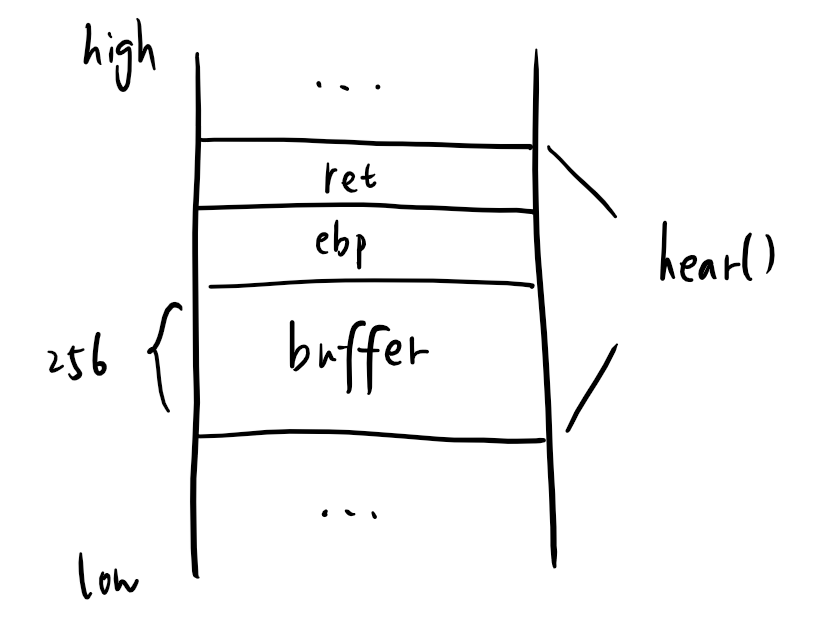 high
...
ret
ebp
hear()
256
buffer
...
low